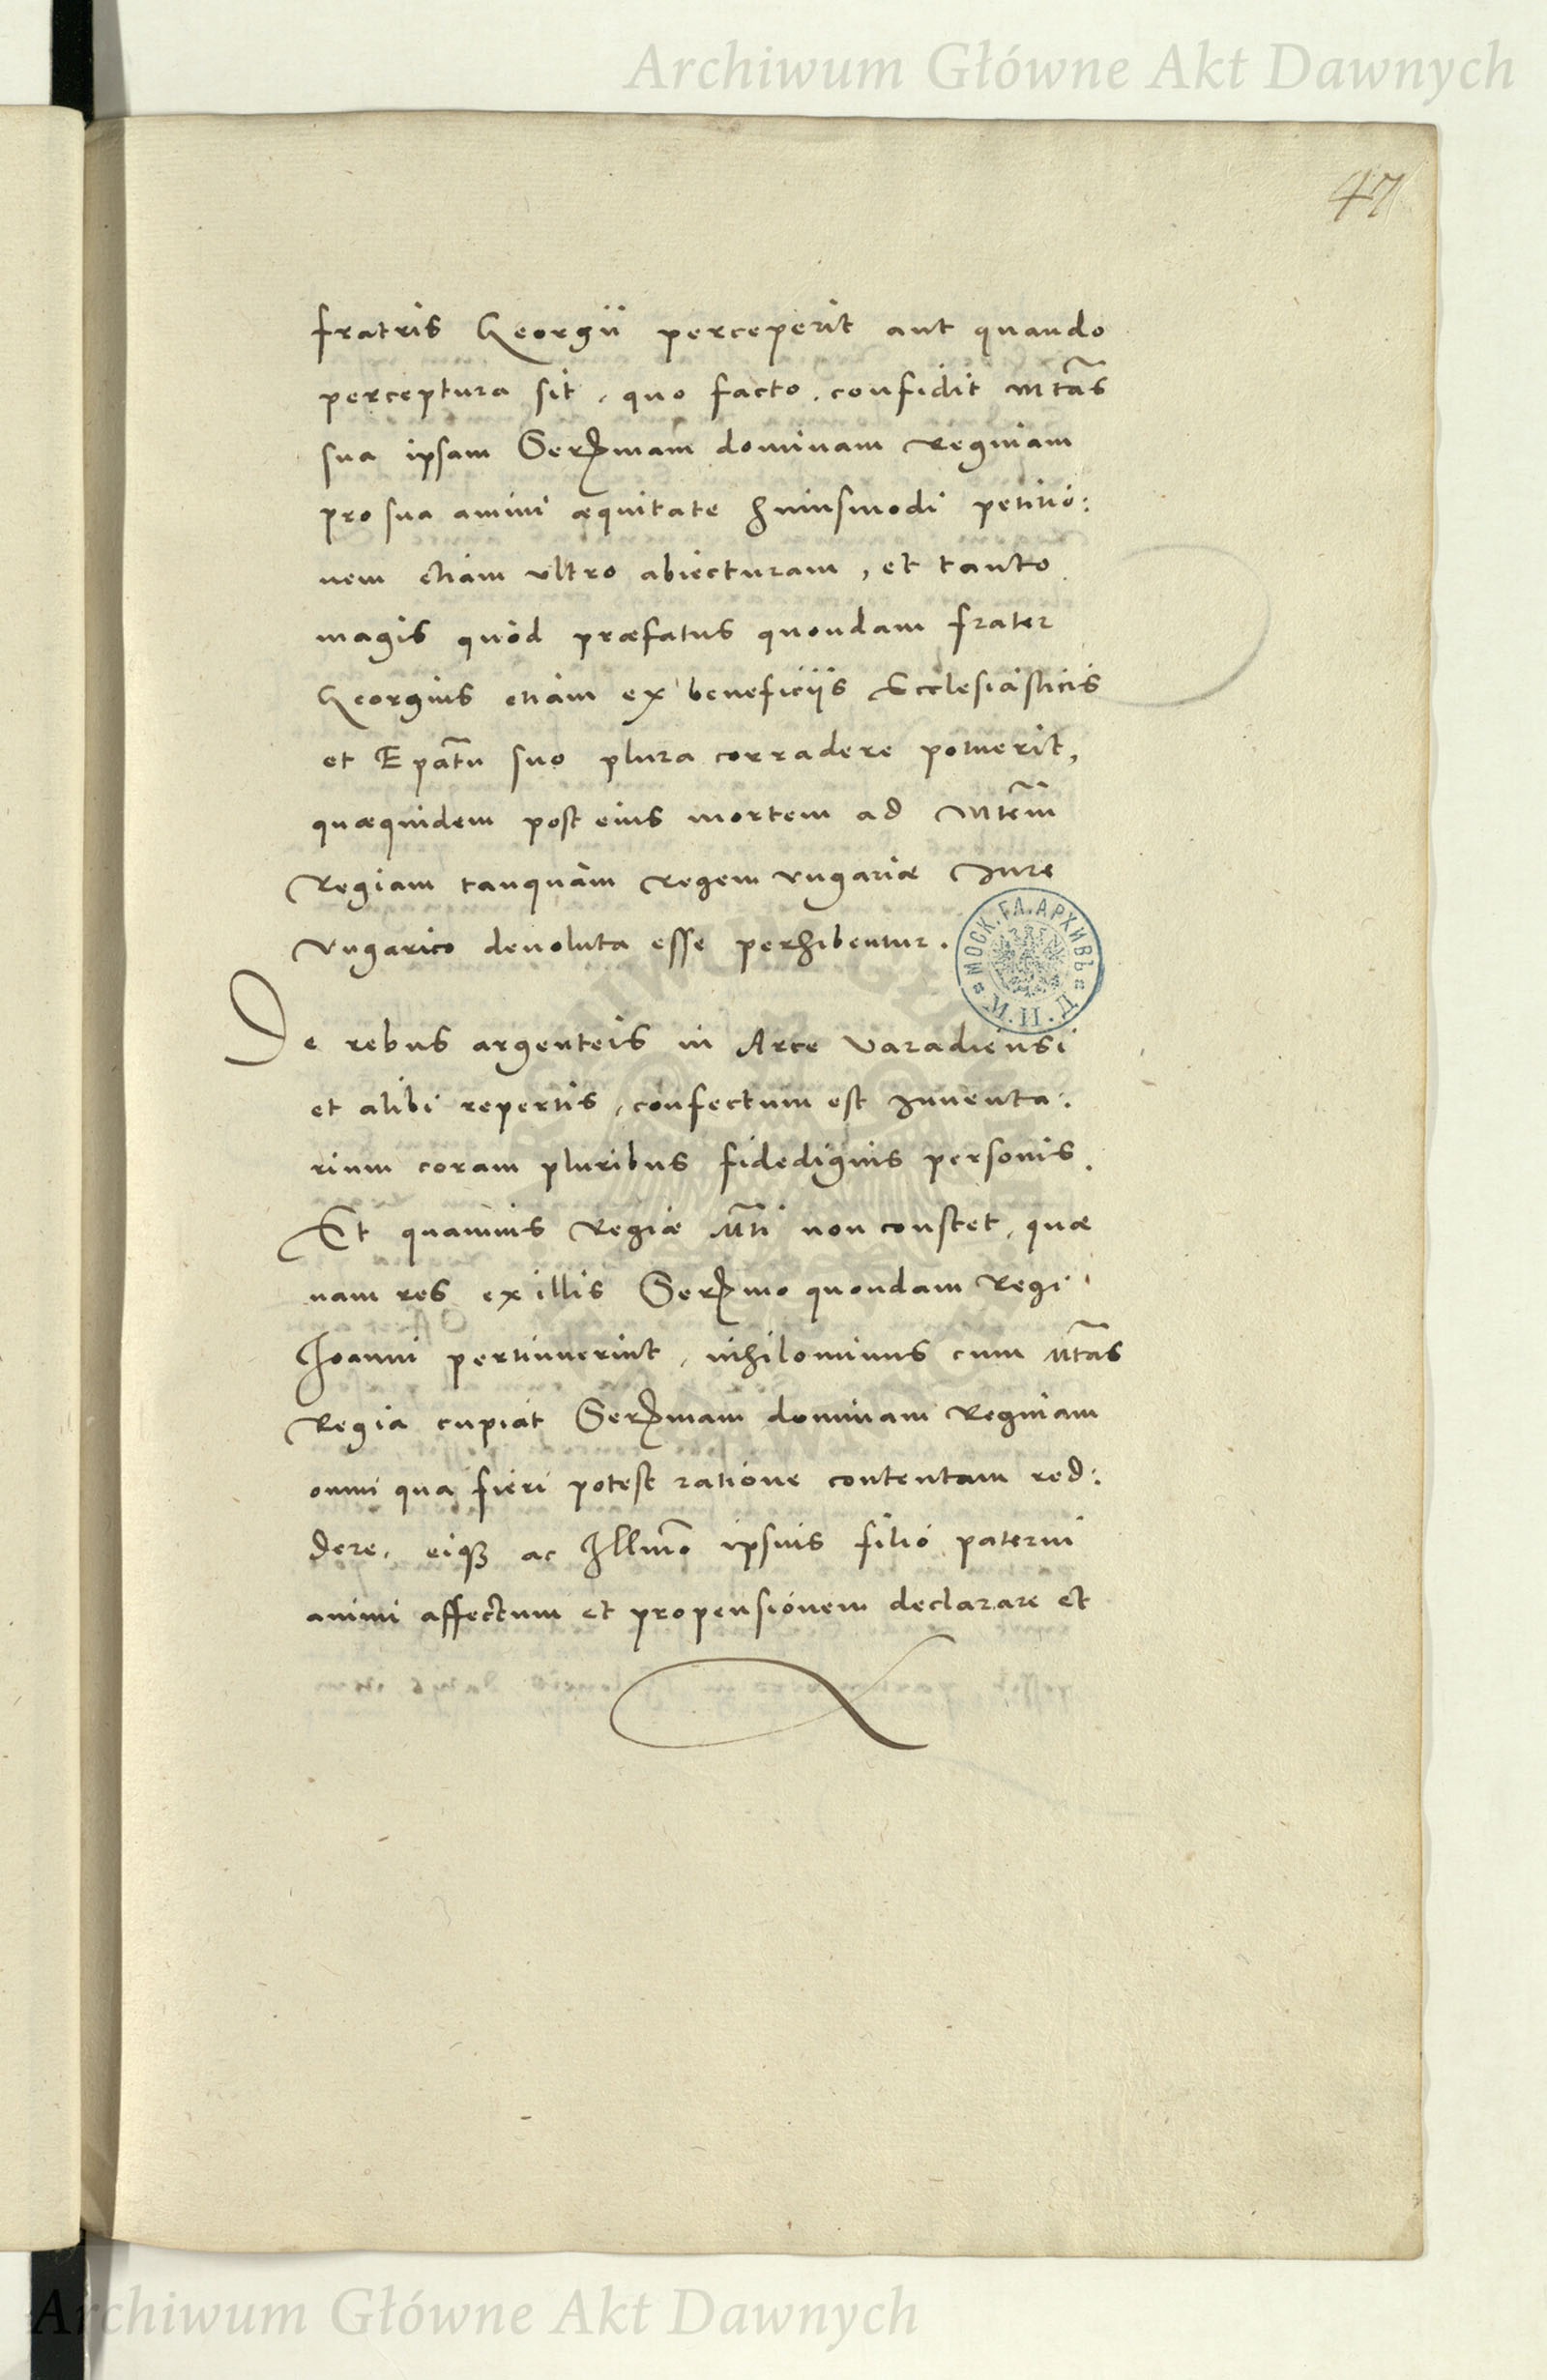 Archiwum Główne Akt Dawnych
47
fratris Georgii perceperit aut quando
perceptura sit, quo facto, confidit Mtãs
sua ipsam Serᵐmam dominam Reginam
pro sua animi æquitate huiusmodi petitio:
nem etiam vltro abiecturam, et tanto
magis quòd præfatus quondam frater
Georgius etiam ex beneficiis Ecclesiasticis
et Epãtu suo plura corradere potuerit,
quæquidem post eius mortem ad Mtẽm
Regiam tanquàm Regem Vngariæ Jure
Vngarico deuoluta esse perhibentur.
МОСК. ГЛ. АРХИВЪ
De rebus argenteis in Arce Varadiensi
et alibi repertis, confectum est Inuenta:
rium coram pluribus fidedignis personis.
Et quamuis Regiæ Mti non constet, quæ
nam res ex illis Serᵐmo quondam Regi
Joanni pertinuerint, nihilominus cum Mtãs
Regia cupiat Serᵐmam dominam Reginam
omni qua fieri potest ratione contentam red:
dere, eiqꝫ ac Illmõ ipsius filio paterni
animi affectum et propensionem declarare et
Archiwum Główne Akt Dawnych